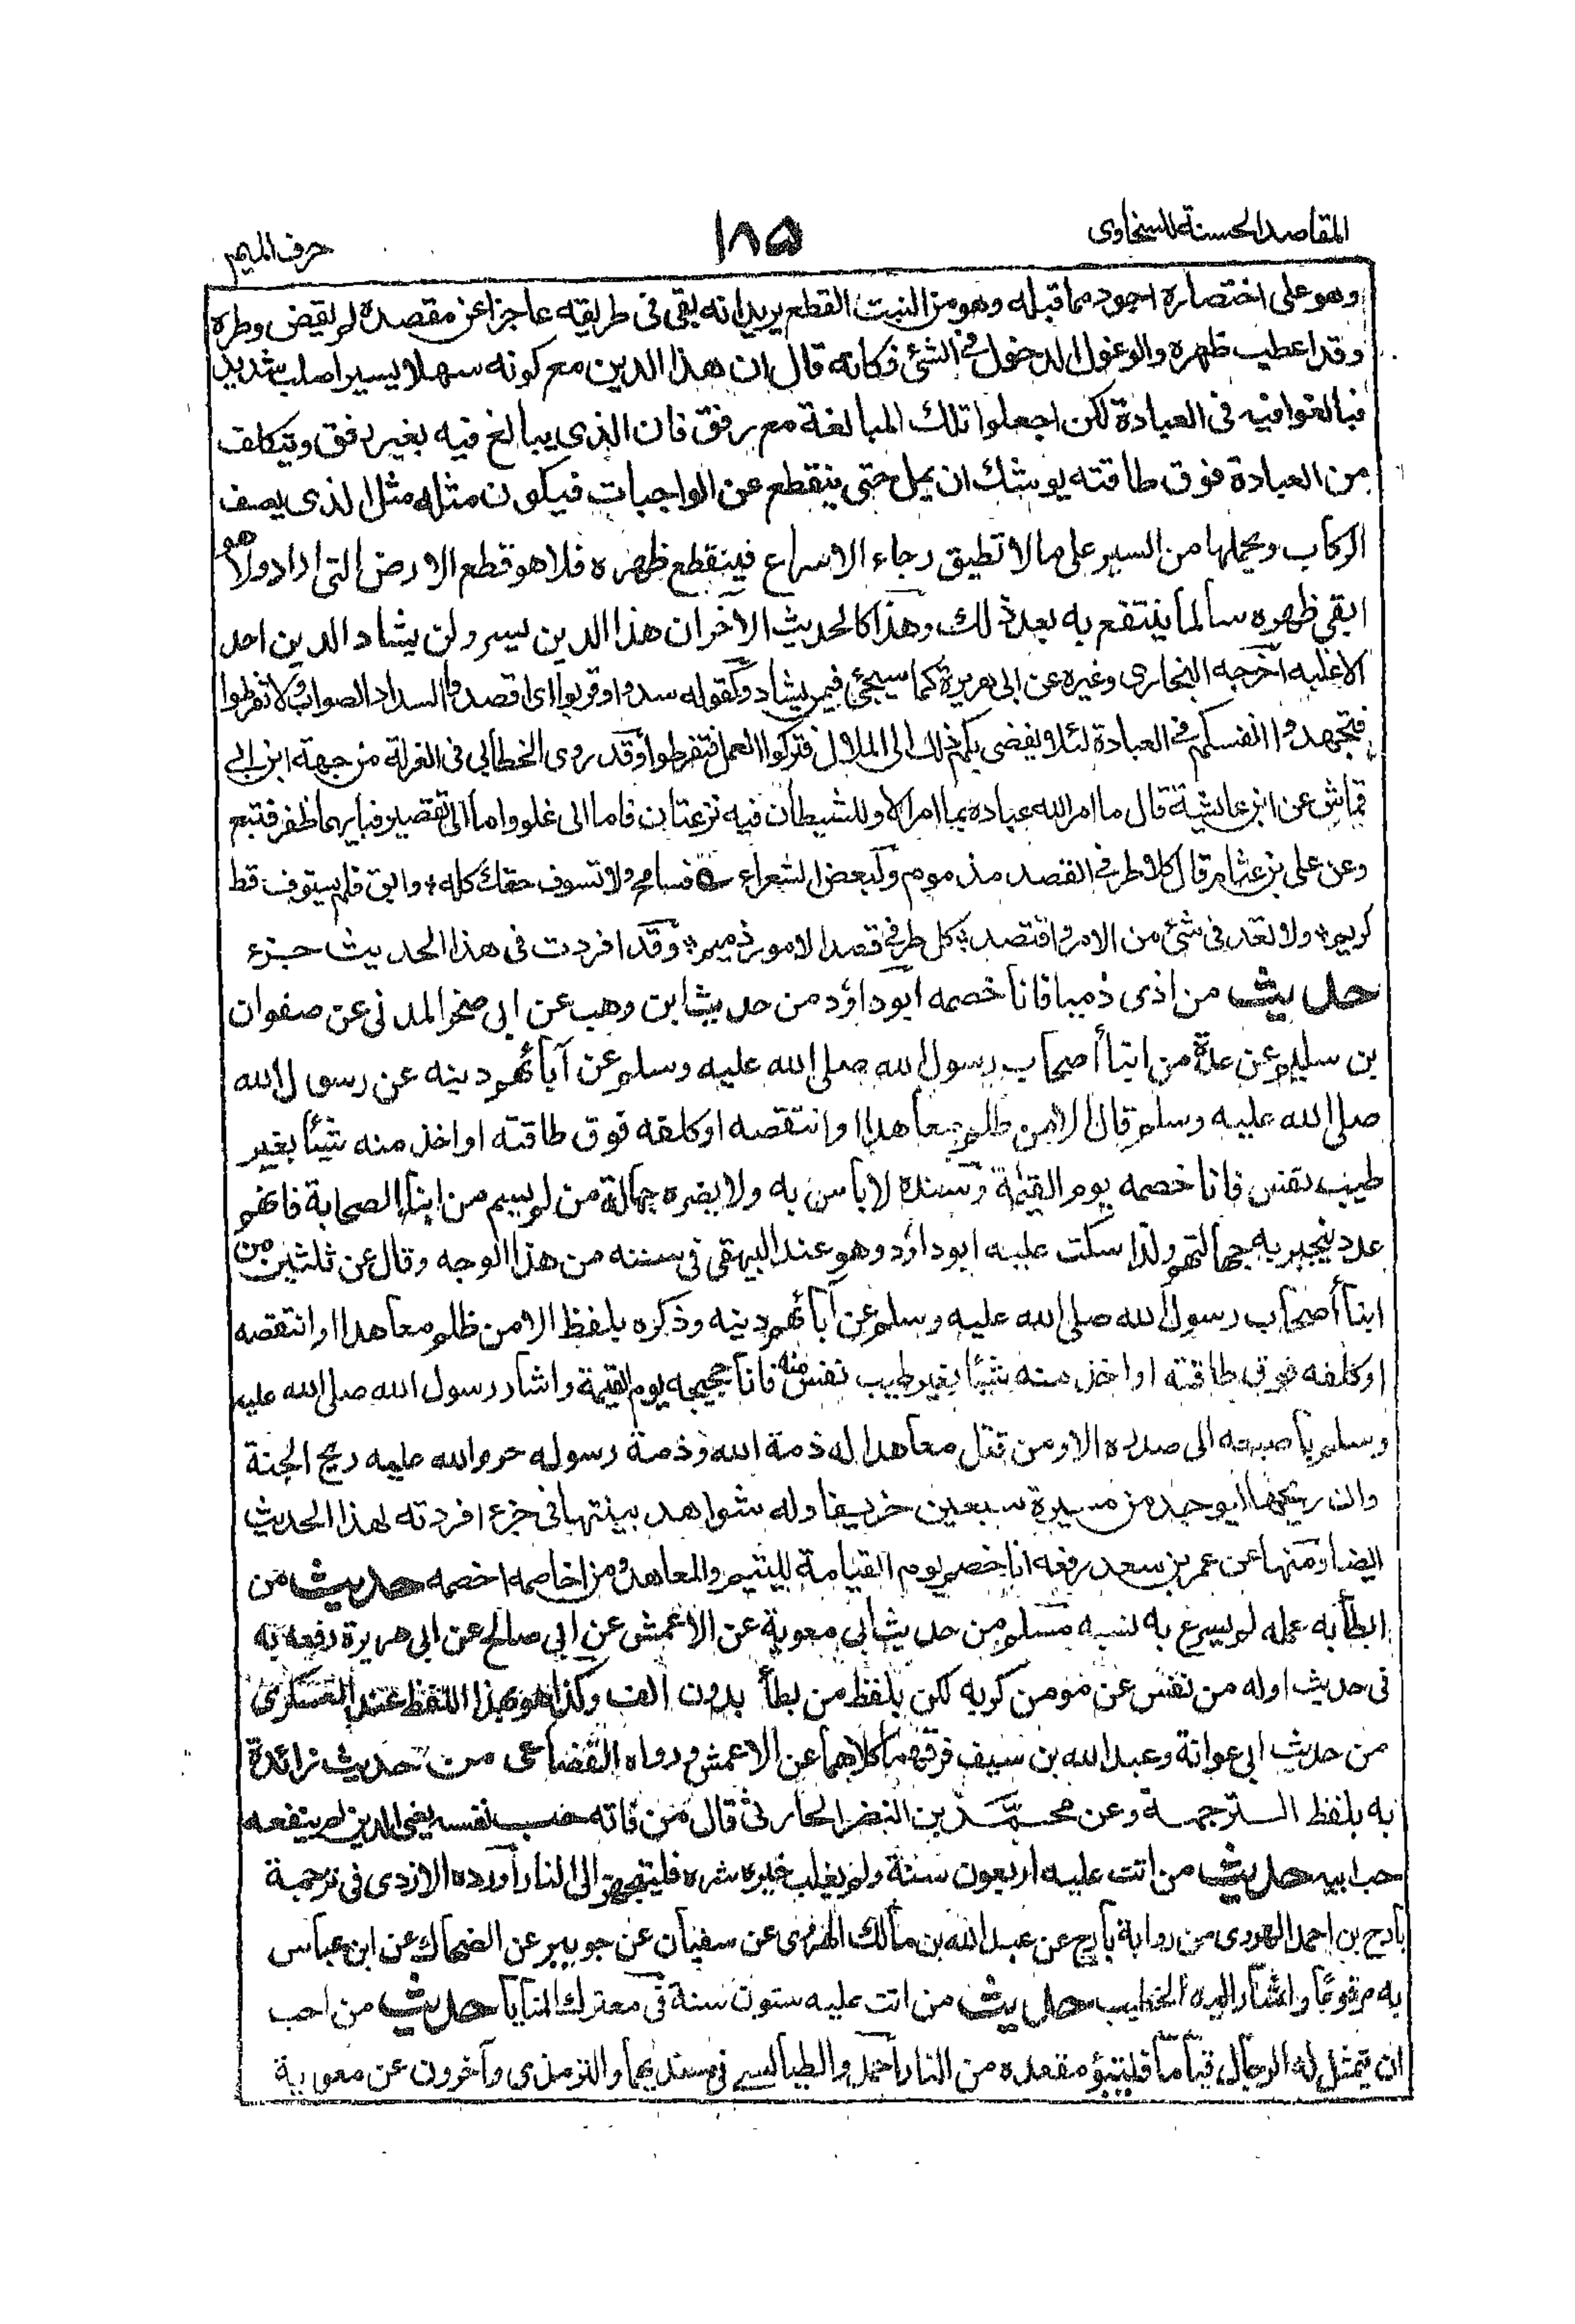 المقاصد الحسنة للسخاوى
١٨٥
حرف الميم
وهو على اختصاره اجود مما قبله وهو من النبت القطع يريد انه بقى فى طريقه عاجزا عن مقصده لم يقض وطره
وقد اعطب ظهره والوغول الدخول فى الشئ فكانه قال ان هذا الدين مع كونه سهلا يسيرا صلب شديد
فبالغوا فيه فى العبادة لكن اجعلوا تلك المبالغة مع رفق فان الذى يبالغ فيه بغير رفق ويتكلف
من العبادة فوق طاقته يوشك ان يمل حتى ينقطع عن الواجبات فيكون مثله مثل الذى يصف
الركاب ويحملها من السير على ما لا تطيق رجاء الاسراع فينقطع ظهره فلا هو قطع الارض التى اراد ولا هو
ابقى ظهره سالما ينتفع به بعد ذلك وهذا كالحديث الاخر ان هذا الدين يسر ولن يشاد الدين احد
الا غلبه اخرجه البخارى وغيره عن ابى هريرة كما سيجئ فيمن يشاد وكقوله سددوا وقربوا اى اقصدوا السداد الصواب ولا تفرطوا
فتجهدوا انفسكم فى العبادة لئلا يفضى بكم ذلك الى الملال فتركوا العمل فتفرطوا وقد روى الخطابي فى العزلة من جهة ابن ابى
قماش عن ابن عائشة قال ما امر الله عباده بما امر الا وللشيطان فيه نزعتان فاما الى غلو واما الى تقصير فبايهما ظفر قنع
وعن على بن عثام قال كلا طرفى القصد مذموم ولبعض الشعراء فسامح ولا تسوف حقك كله * وابق فلم يستوف قط
كريم * ولا تعد فى شئ من الامر واقتصد * كل طرفى قصد الامور ذميم * وقد افردت فى هذا الحديث جزء
حديث من اذى ذميا فانا خصمه ابو داؤد من حديث ابن وهب عن ابى صخر المدنى عن صفوان
بن سليم عن عدة من ابنا أصحاب رسول الله صلى الله عليه وسلم عن آبائهم دينه عن رسول الله
صلى الله عليه وسلم قال الا من ظلم معاهدا او انتقصه او كلفه فوق طاقته او اخذ منه شيئا بغير
طيب نفس فانا خصمه يوم القيمة وسنده لا باس به ولا يضره جهالة من لم يسم من ابناء الصحابة فانهم
عدد ينجبر به جهالتهم ولذا سكت عليه ابو داؤد وهو عند البيهقى فى سننه من هذا الوجه وقال عن ثلثين من
ابنا أصحاب رسول الله صلى الله عليه وسلم عن آبائهم دينه وذكره بلفظ الا من ظلم معاهدا او انتقصه
او كلفه فوق طاقته او اخذ منه شيئا بغير طيب نفس منه فانا حجيجه يوم القيمة واشار رسول الله صلى الله عليه
وسلم باصبعه الى صدره الا ومن قتل معاهدا له ذمة الله وذمة رسوله حرم الله عليه ريح الجنة
وان ريحها ليوجد من مسيرة سبعين خريفا وله شواهد بينتها فى جزء افردته لهذا الحديث
ايضا ومنها عن عمر بن سعد رفعه انا خصم يوم القيامة لليتيم والمعاهد ومن اخاصمه اخصمه حديث من
ابطأ به عمله لم يسرع به نسبه مسلم من حديث ابى معوية عن الاعمش عن ابى صالح عن ابى هريرة رفعه به
فى حديث اوله من نفس عن مومن كربه لكن بلفظ من بطأ بدون الف وكذا هو بهذا اللفظ عند العسكرى
من حديث ابى عوانة وعبد الله بن سيف فرقهما كلاهما عن الاعمش ورواه القضاعى من حديث زائدة
به بلفظ الترجمة وعن محمد بن النضر الحارثى قال من فاته حسب نفسه يعنى الدين لم ينفعه
حسب ابيه حديث من اتت عليه اربعون سنة ولم يغلب خيره شره فليتجهز الى النار اورده الازدى فى ترجمة
بارح بن احمد الهروى من رواية بارح عن عبد الله بن مالك الهروى عن سفيان عن جويبر عن الضحاك عن ابن عباس
به مرفوعا واشار اليه الخطيب حديث من اتت عليه ستون سنة فى معترك المنايا حديث من احب
ان يتمثل له الرجال قياما فليتبؤ مقعده من النار احمد والطيالسى فى مسنديهما والترمذى وآخرون عن معوية